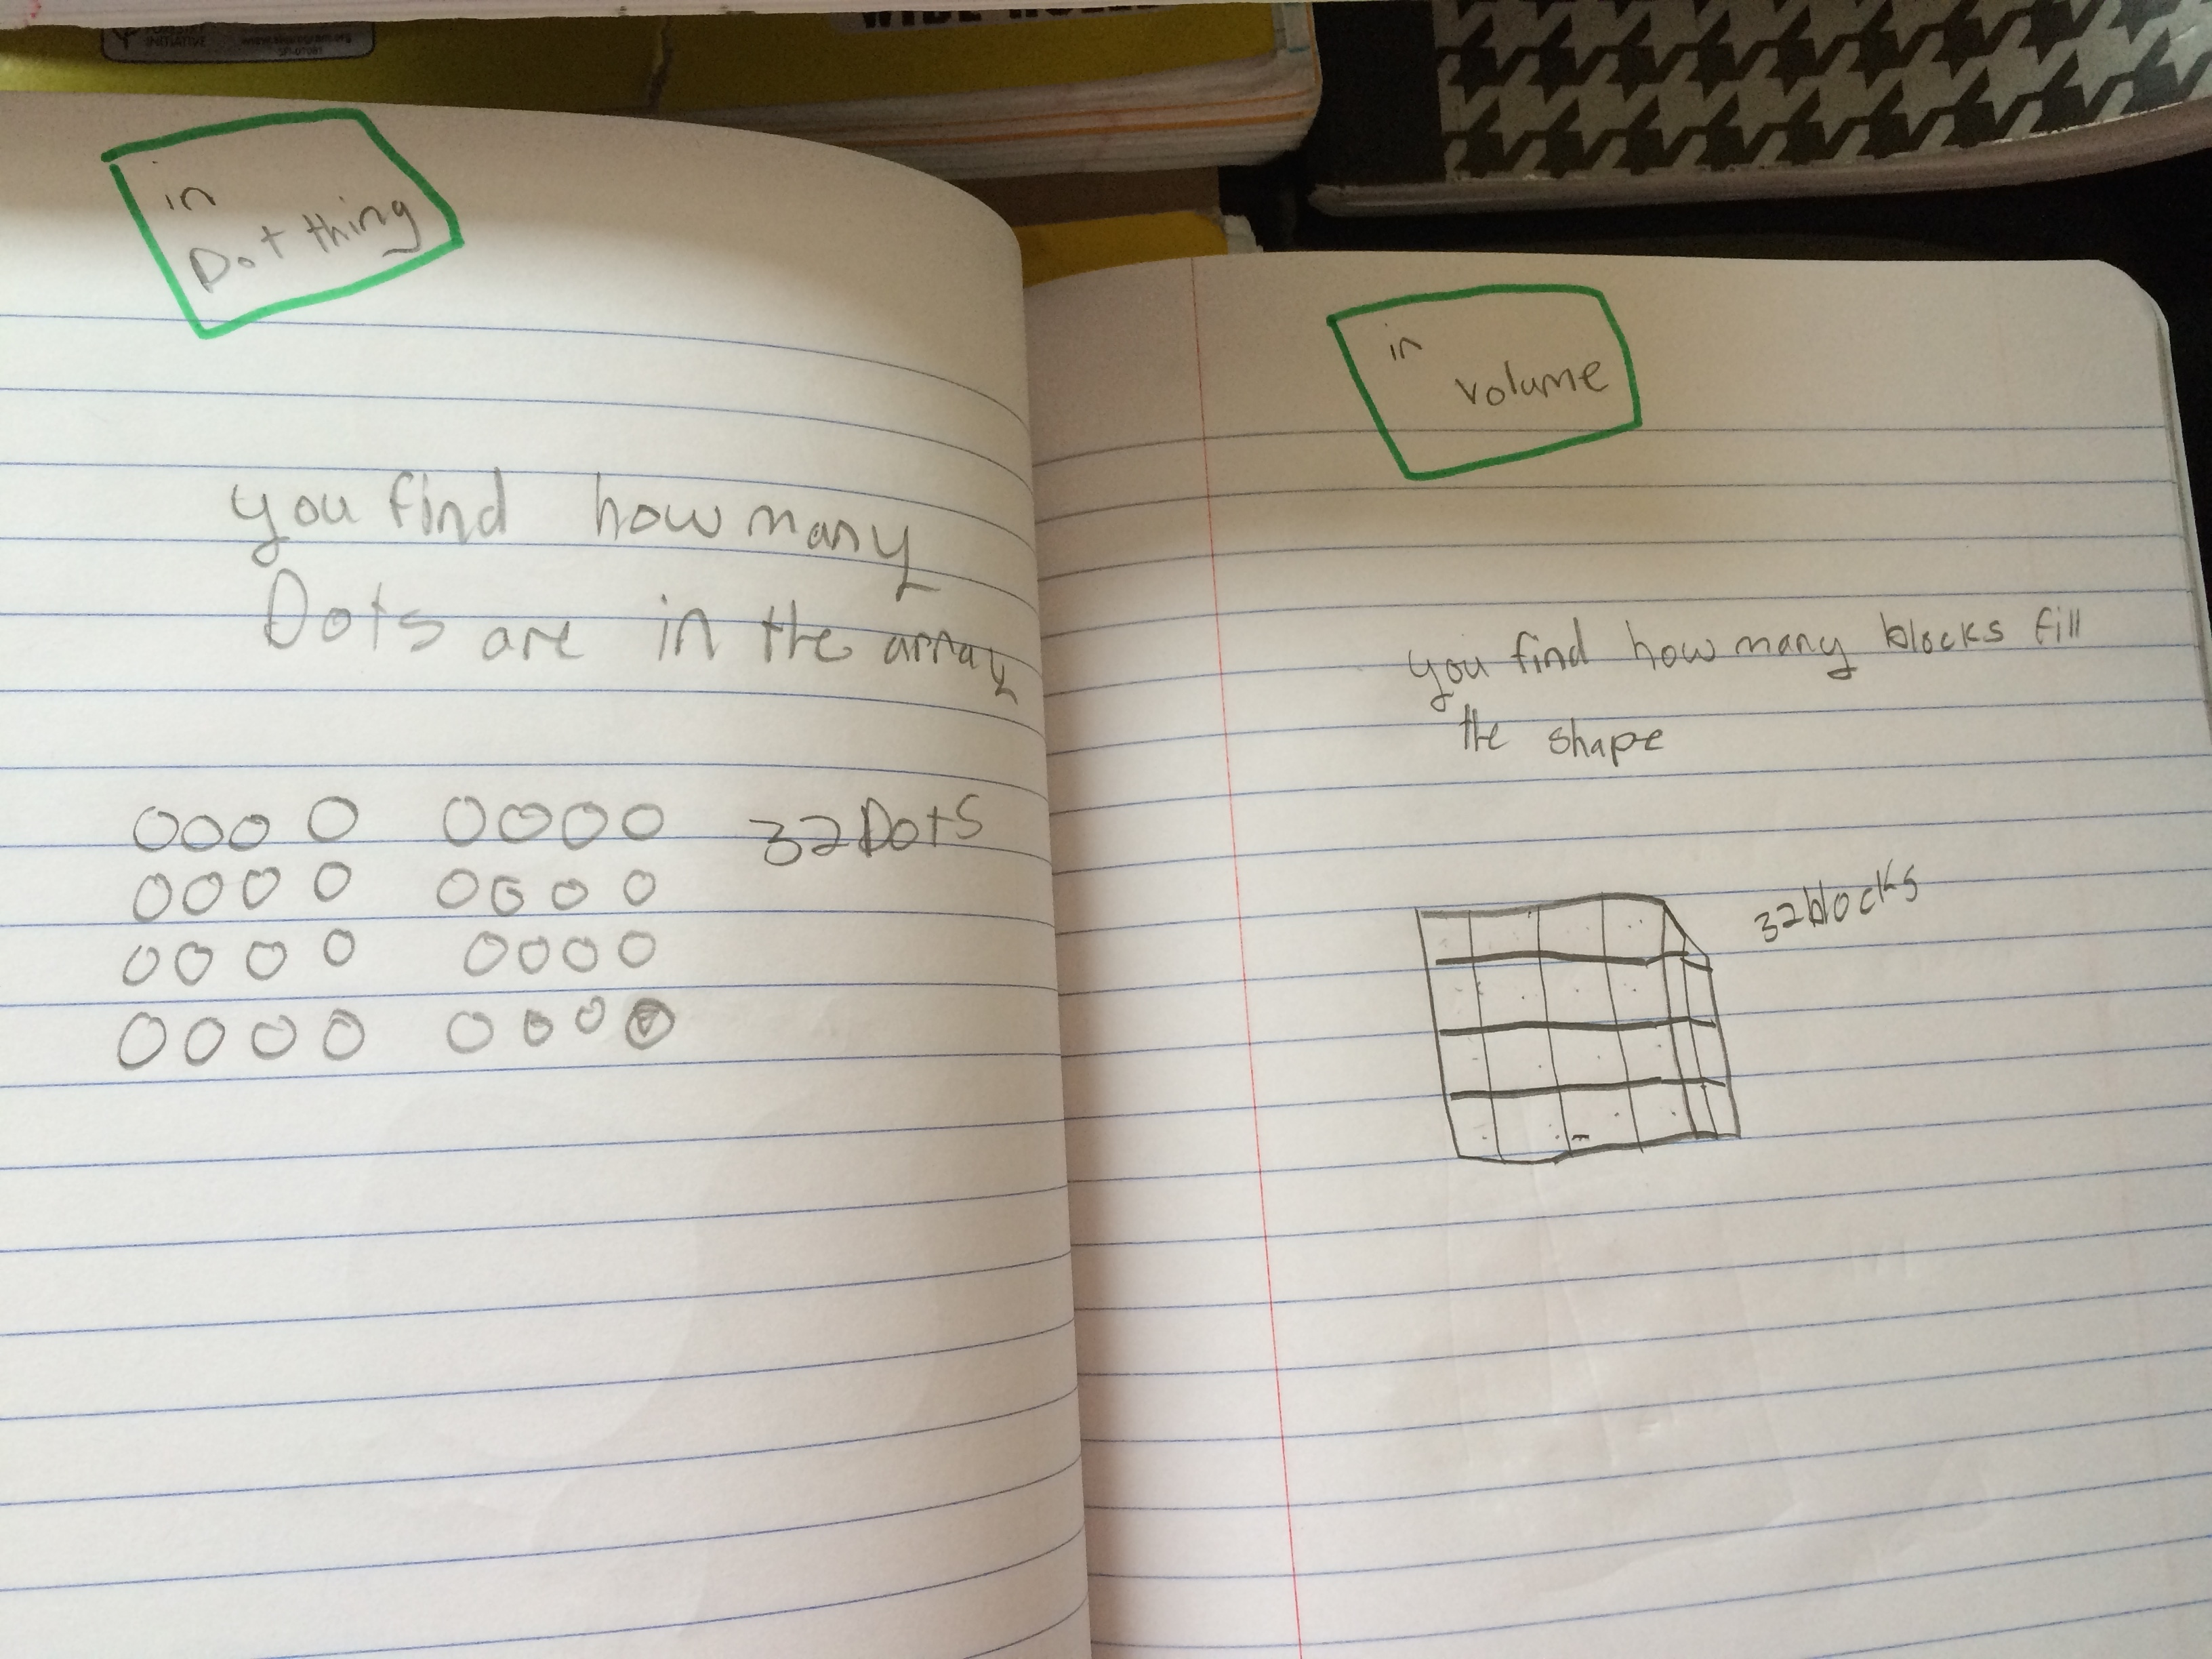 INITIATIVE
in
Dot thing
you find how many
Dots are in the array
32 Dots
in
volume
you find how many blocks fill
the shape
32 blocks